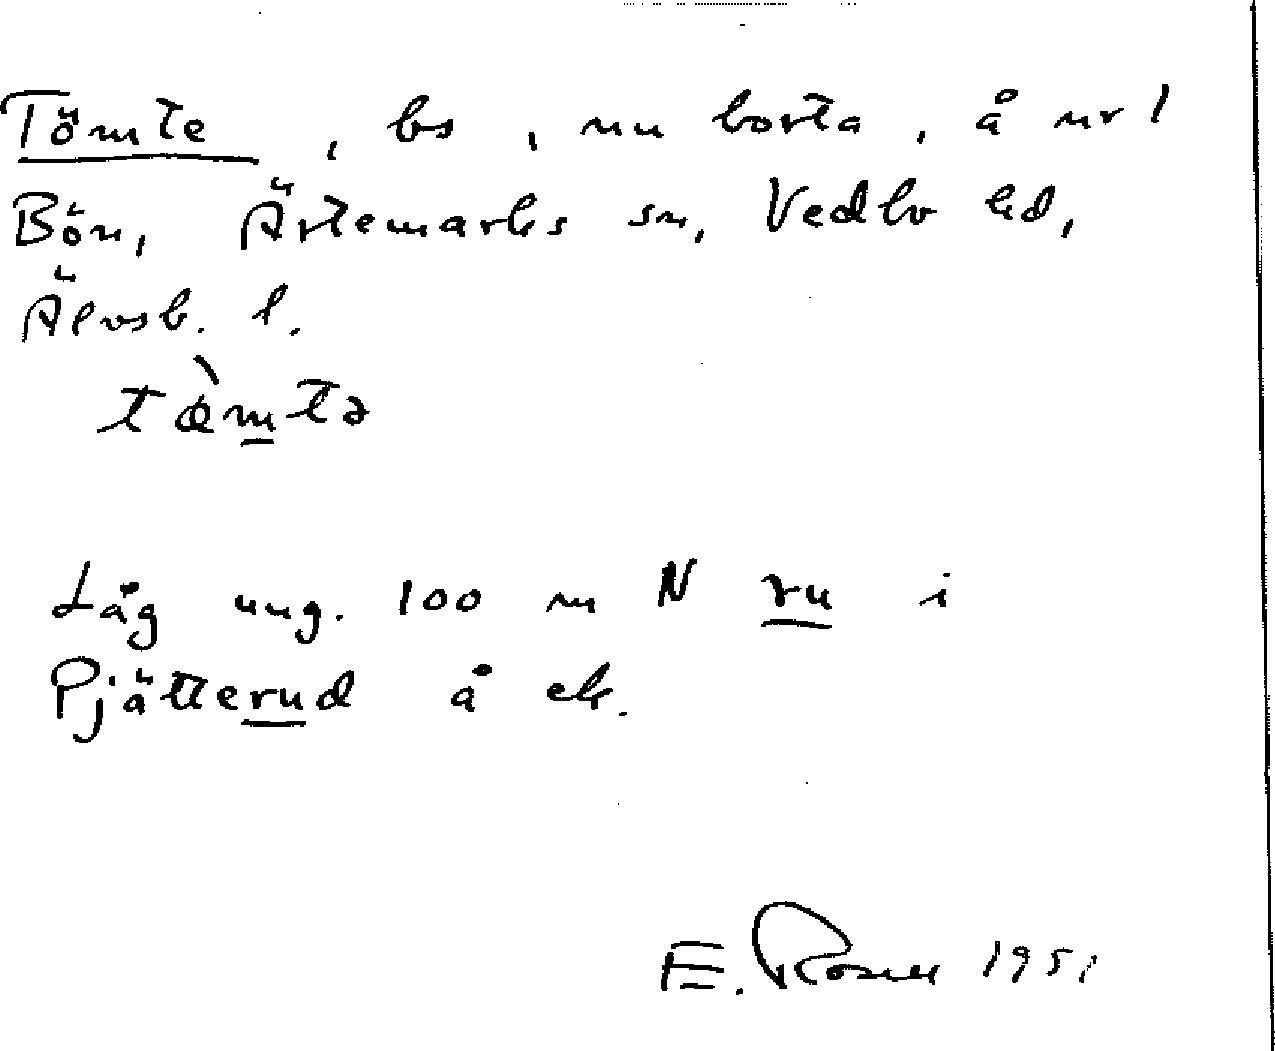 Tömte, bs, nu borta, å nr 1
Bön, Ärtemarks sn, Vedbo hd,
Älvsb. l.
tø̀mtə
Låg ung. 100 m N ru i
Pjätterud å ek.
E. Rosell 1951